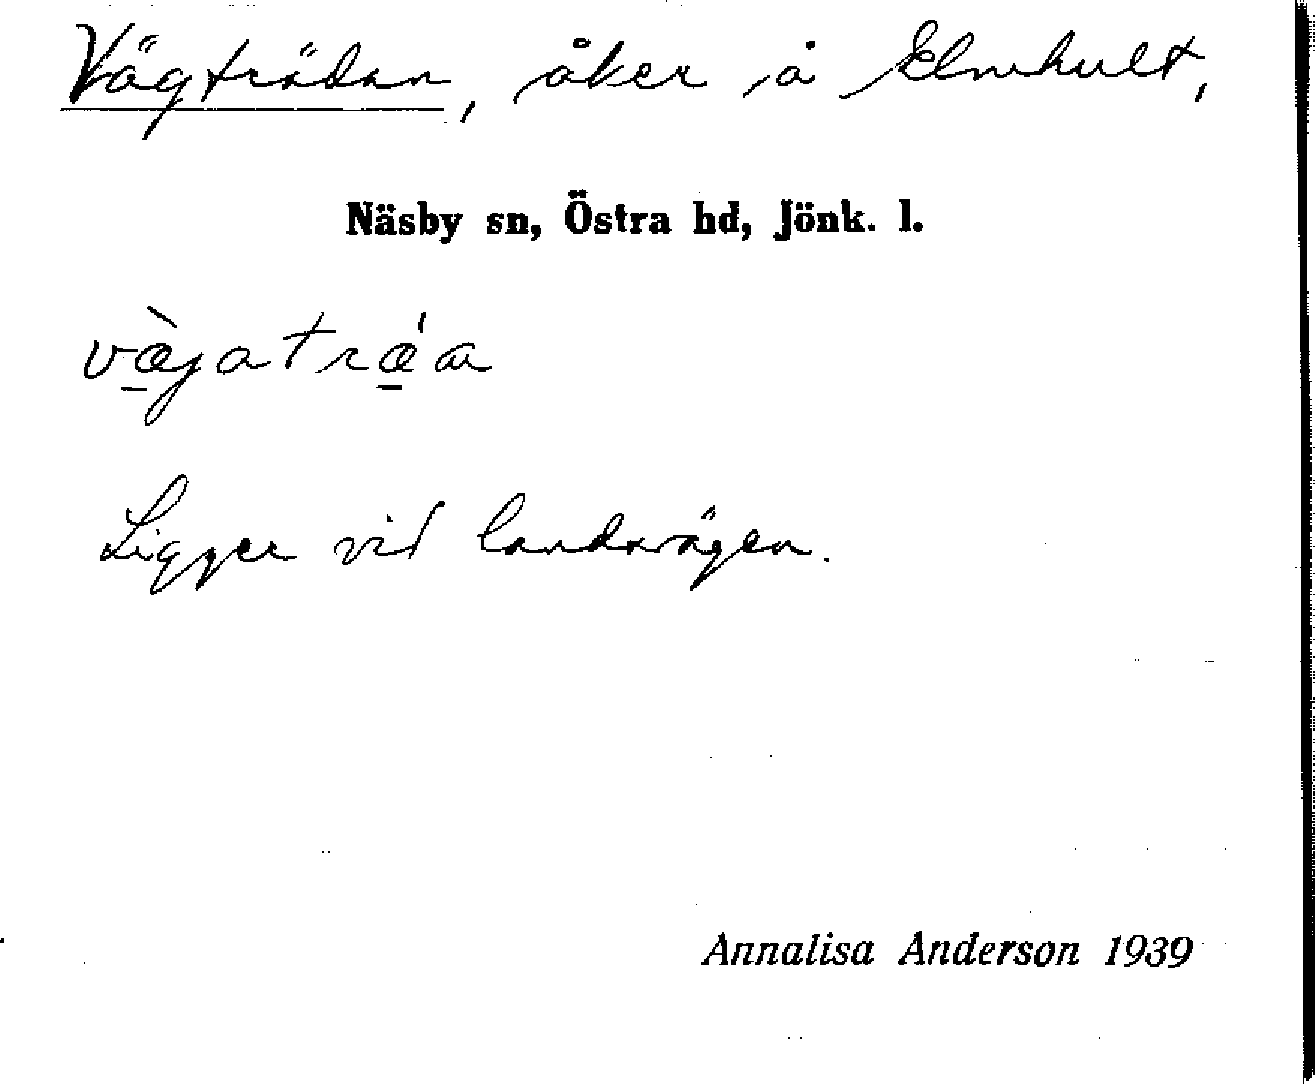 Vägträdan, åker å Elmhult,
Näsby sn, Östra hd, Jönk. l.
væ̀gatrǽan
Ligger vid landsvägen.
Annalisa Anderson 1939